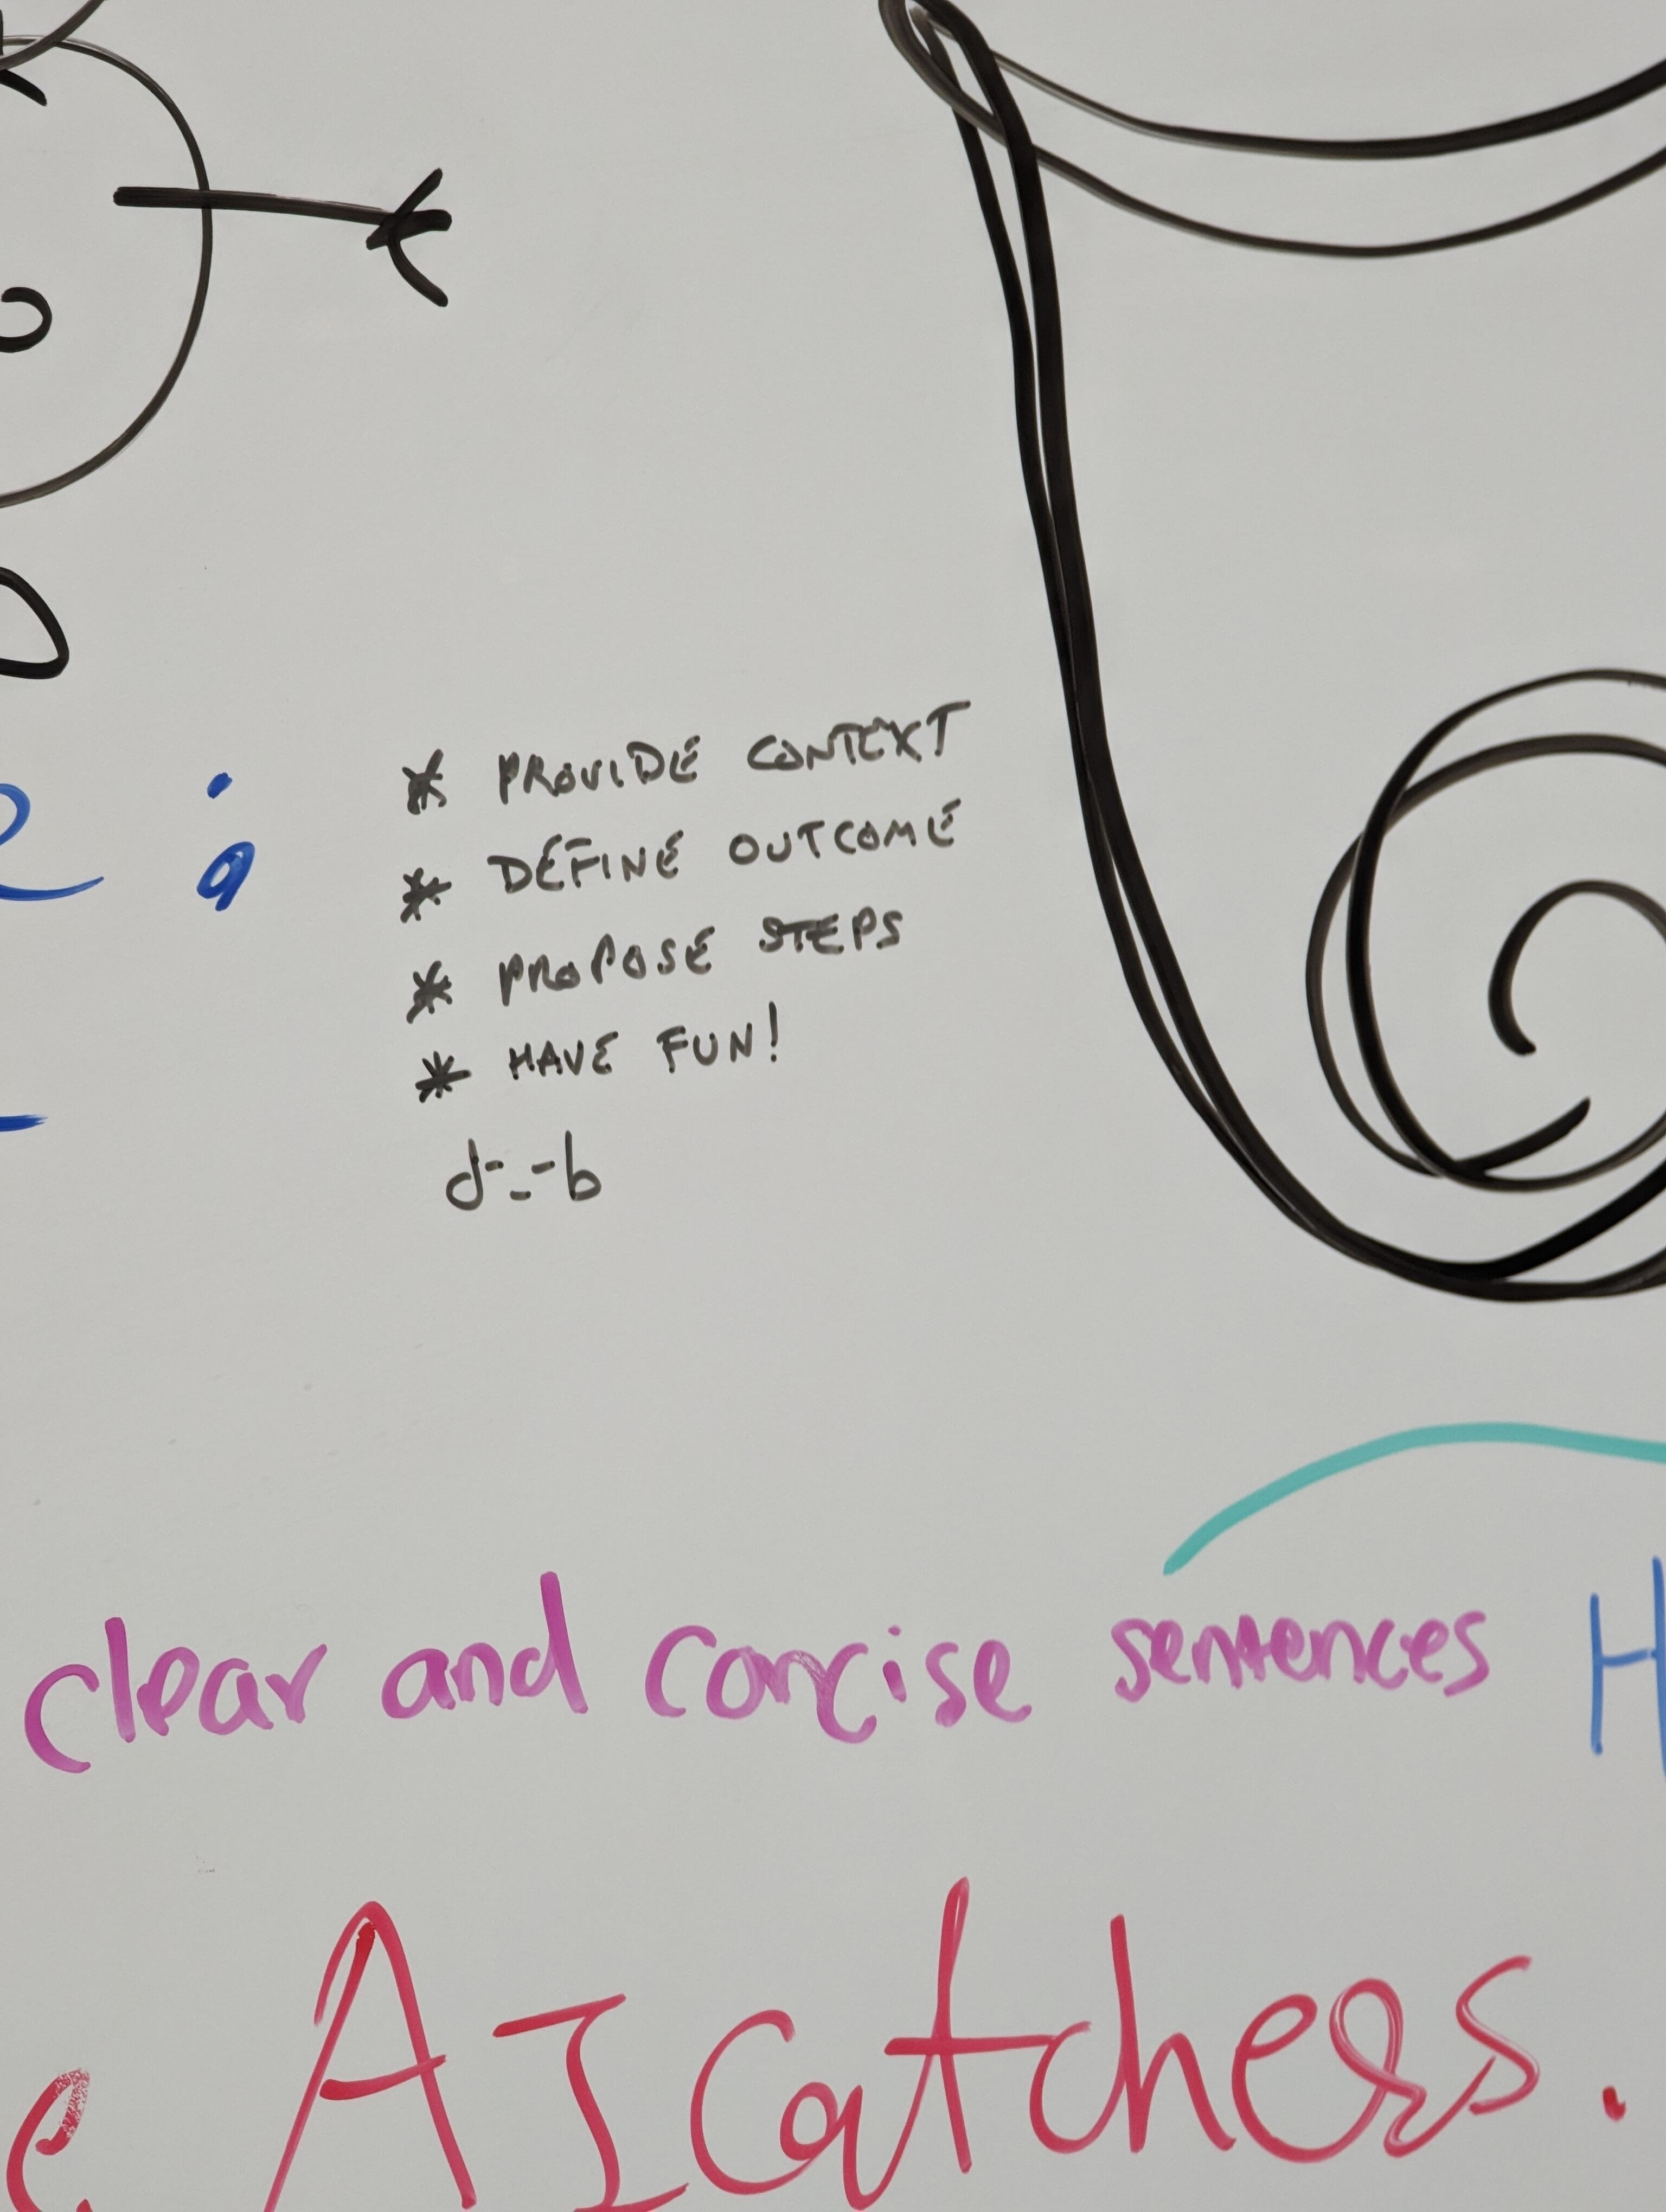 * PROVIDE CONTEXT
* DEFINE OUTCOME
* PROPOSE STEPS
* HAVE FUN!
d-_-b
clear and concise sentences H
e AICatchers.